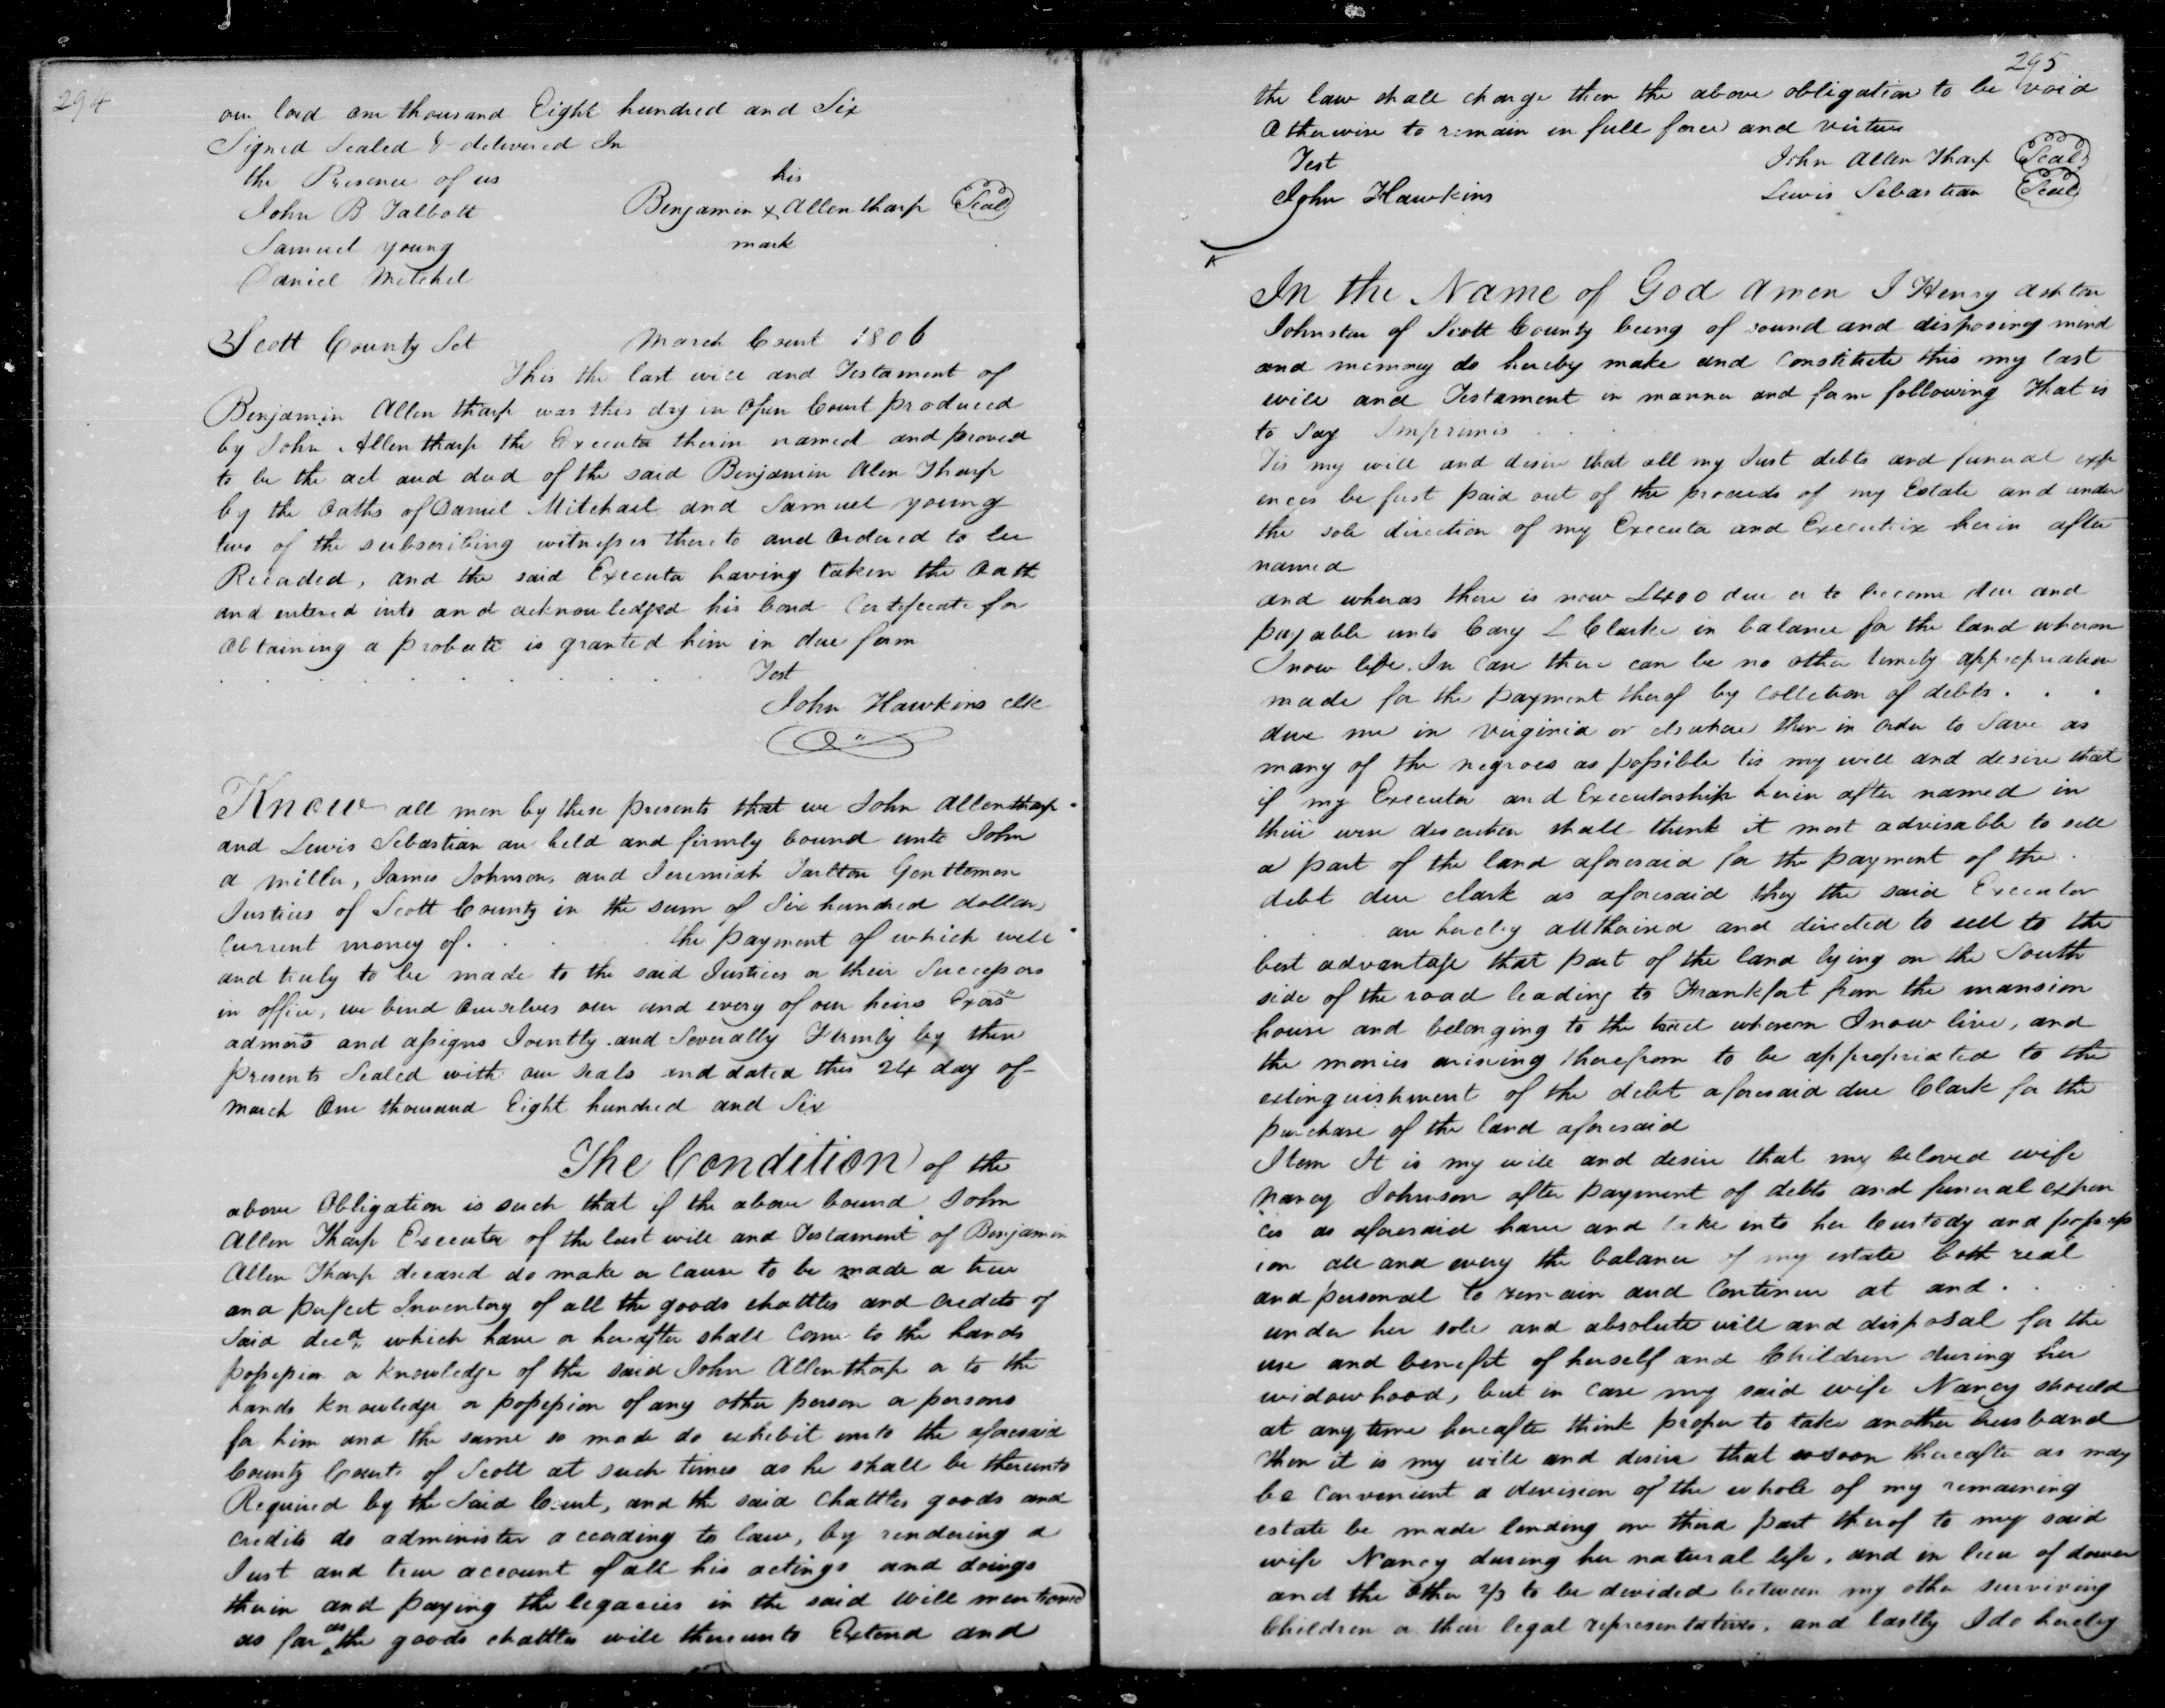 294
our lord one thousand Eight hundred and Six
Signed Sealed & delivered In
the Presence of us
John B Talbott
Samuel young
Daniel Mitchel
his
Benjamin x Allen tharp Seal
mark
Scott County Sct March Court 1806
This the last will and Testament of
Benjamin Allen tharp was this day in Open Court produced
by John Allen tharp the Executor therin named and proved
to be the act and deed of the said Benjamin Alen Tharp
by the Oaths of Daniel Mitchael and Samuel young
two of the subscribing witnesses thereto and Ordered to be
Recorded, and the said Executor having taken the Oath
and entered into and acknowledged his bond Certificate for
obtaining a probate is granted him in due form
Test
John Hawkins clk
Know all men by these presents that we John Allen tharp
and Lewis Sebastian are held and firmly bound unto John
a miller, James Johnson, and Jeremiah Tarlton Gentlemen
Justices of Scott County in the sum of Six hundred dollars
Current money of . . . the payment of which well
and truly to be made to the said Justices or their Successors
in office, we bind Ourselves our and every of our heirs Exors
admors and assigns Jointly and Severally Firmly by these
presents Sealed with our seals and dated this 24 day of
March One thousand Eight hundred and Six
The Condition of the
above Obligation is such that if the above bound John
Allen Tharp Executor of the last will and Testament of Benjamin
Allen Tharp deceased do make or cause to be made a true
and perfect Inventory of all the goods chattles and Credits of
Said decd, which have or hereafter shall come to the hands
possession or knowledge of the said John Allen tharp or to the
hands knowledge or possession of any other person or persons
for him and the same so made do exhibit unto the aforesaid
County Court of Scott at such times as he shall be thereunto
Required by the Said Court, and the said Chattles goods and
credits do administer according to law, by rendering a
Just and true account of all his actings and doings
therin and paying the legacies in the said Will mentioned
as far as the goods chattles will thereunto Extend and
295
the law shall charge then the above obligation to be void
Otherwise to remain in full force and virtue
Test John Allen Tharp Seal
John Hawkins Lewis Sebastian Seal
In the Name of God Amen I Henry ashton
Johnston of Scott County being of sound and disposing mind
and memmory do hereby make and Constitute this my last
will and Testament in manner and form following that is
to Say Imprimis
Tis my will and desire that all my Just debts and funeral exp
ences be first paid out of the proceeds of my Estate and under
the sole direction of my Executor and Executrix herin after
named
and wheras there is now £400 due or to become due and
payable unto Cary L Clarke in balance for the land wheron
I now life. In Case there can be no other timely appropriation
made for the payment therof by Colletion of debts . . .
due me in virginia or elswhere then in order to Save as
many of the negroes as possible tis my will and desire that
if my Executor and Executorship herin after named in
their own discretion shall think it most advisable to sell
a part of the land aforesaid for the payment of the
debt due clark as aforesaid they the said Executor
are hereby allthorised and directed to sell to the
best advantage that part of the land lying on the South
side of the road leading to Frankfort from the mansion
house and belonging to the tract wheron I now live, and
the monies arising therefrom to be appropriated to the
extinguishment of the debt aforesaid due Clark for the
purchase of the land aforesaid
Item It is my will and desire that my beloved wife
Nancy Johnson after payment of debts and funeral expen
ces as aforesaid have and take into her Custody and possess
ion all and every the balance of my estate both real
and personal to remain and Continue at and . .
under her sole and absolute will and disposal for the
use and benefit of herself and Children during her
widowhood, but in Case my said wife Nancy should
at any time hereafter think proper to take another husband
then it is my will and desire that as soon thereafter as may
be Convenient a devision of the whole of my remaining
estate be made lending one third part therof to my said
wife Nancy during her natural life, and in lieu of dower
and the other 2/3 to be devided between my other surviving
Children or their legal representatives, and lastly I do hereby